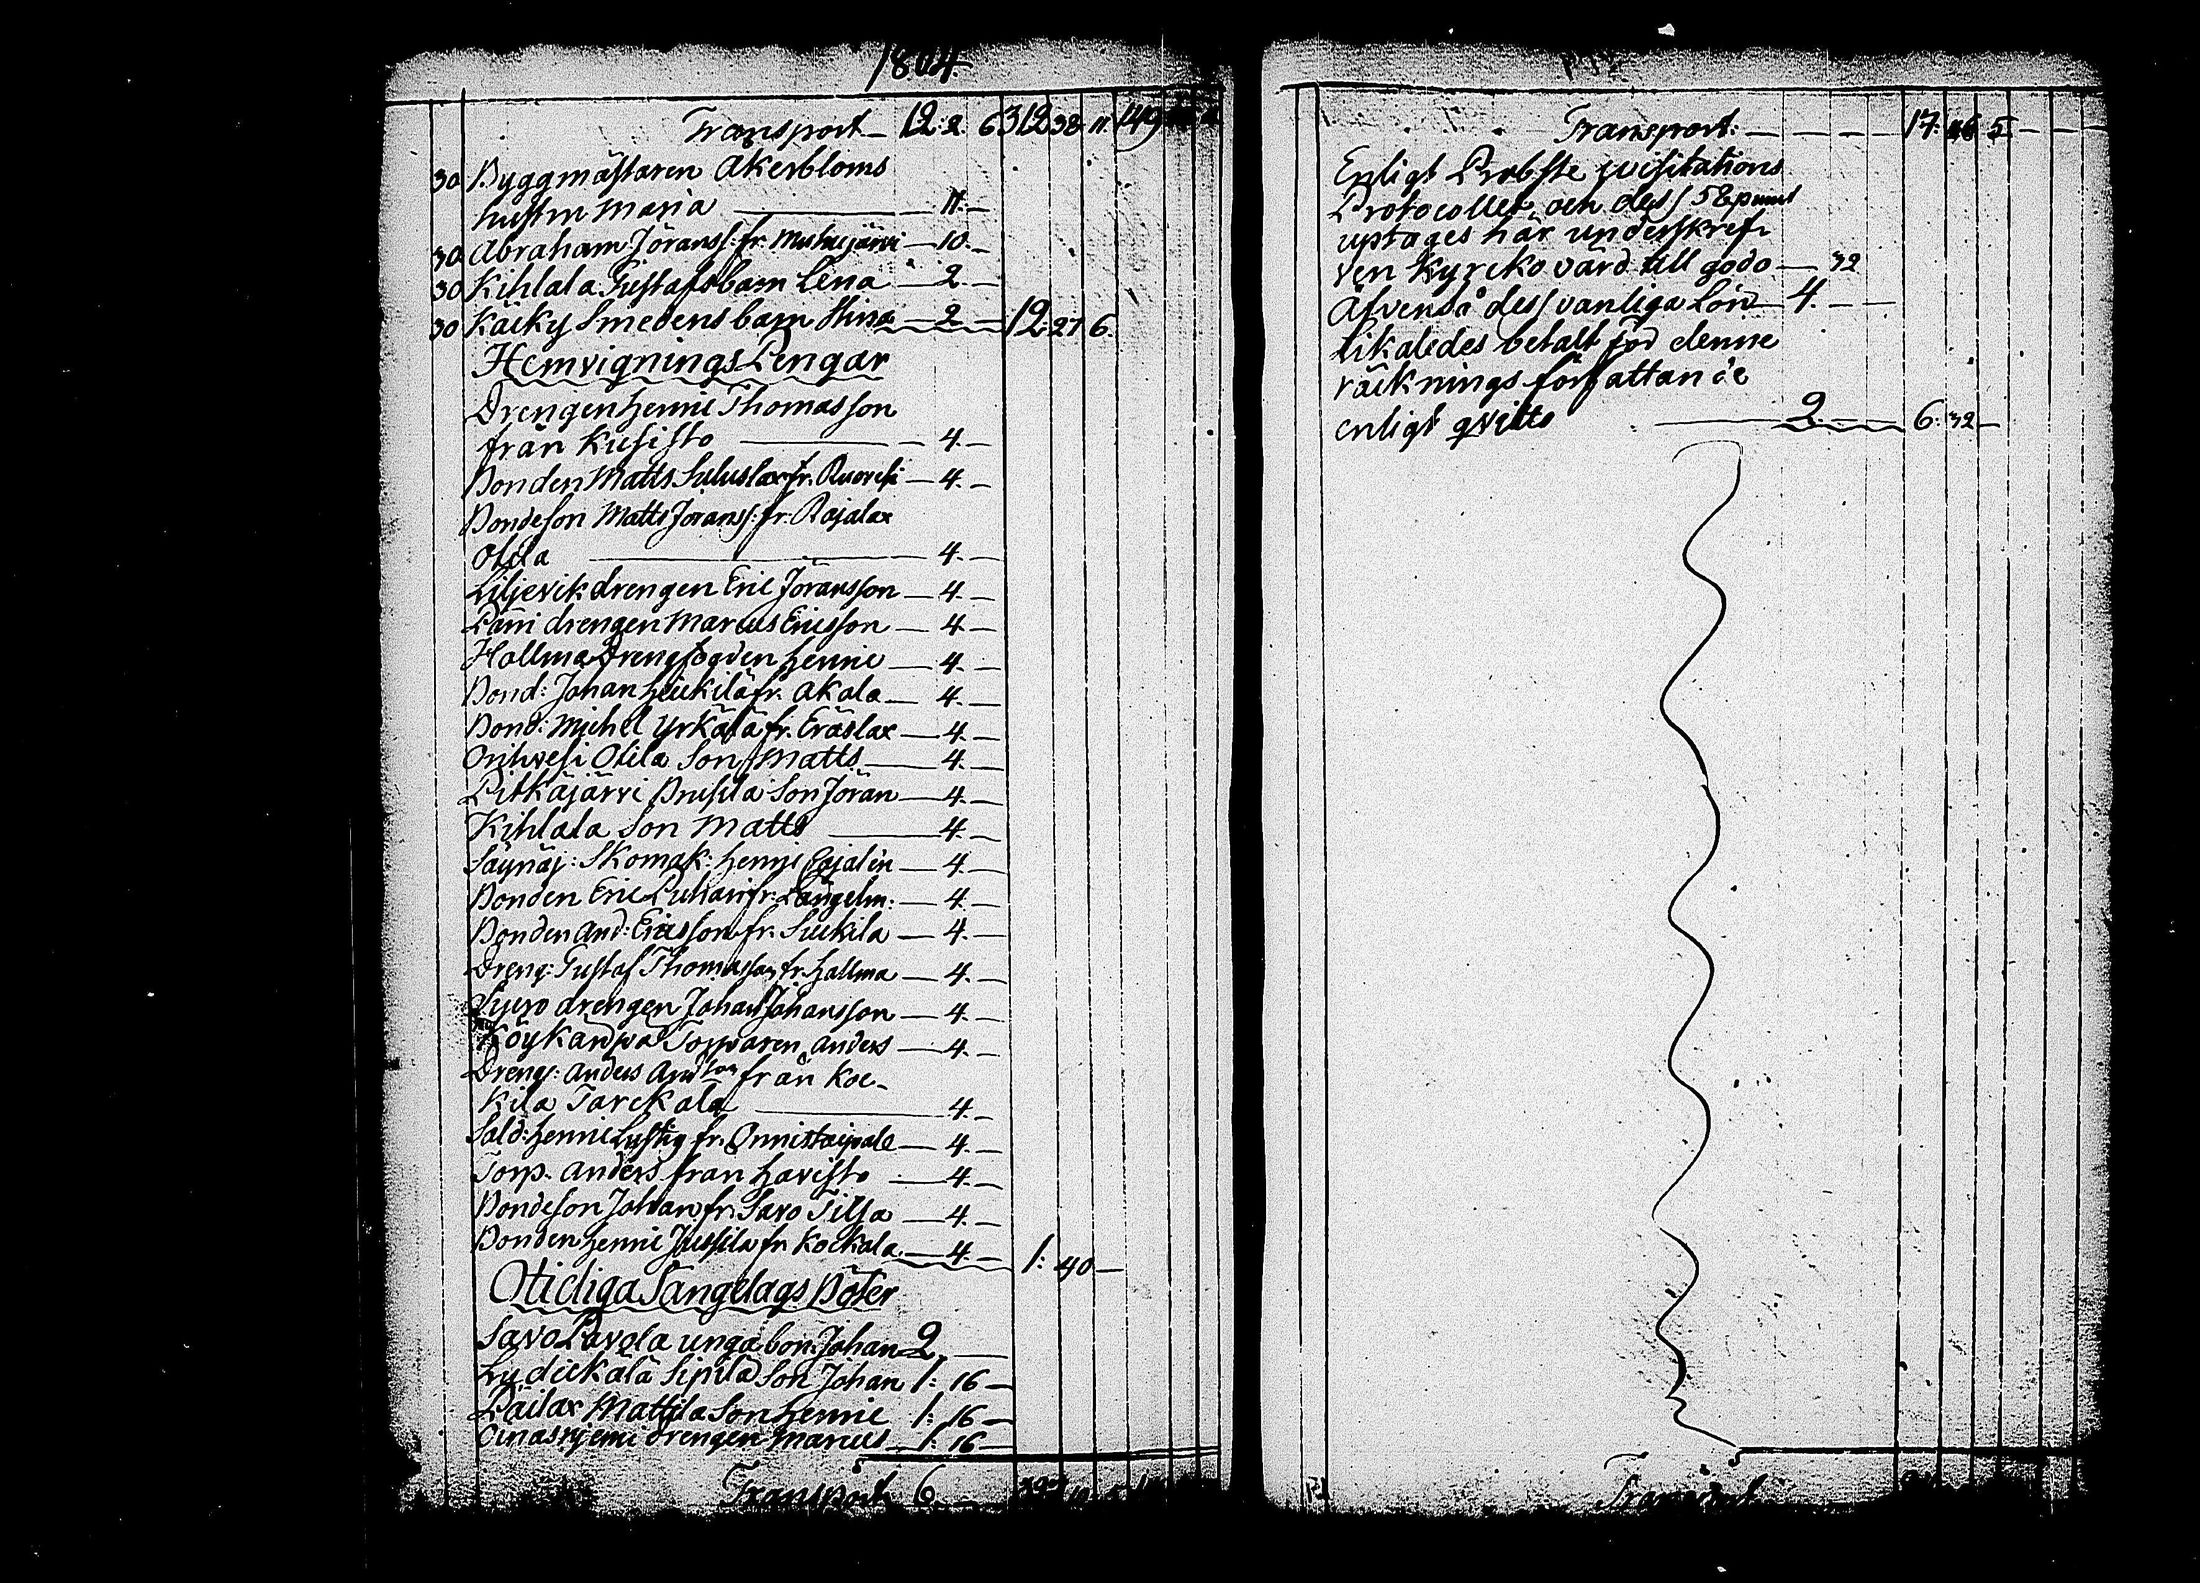 1804.
Transport — 12. 2. 6 312 38. 11. 149
30 Byggmästaren Åkerbloms
hustru Maria — 11. —
30 Abraham Jöranss: fr. — 10. —
30 Kihlala Gustafs barn Lena — 2. —
30 Käcky Smedens barn Stina — 2. — 12. 27 6.
Hemvignings Pengar
Drengen Henric Thomasson
från Kusisto — 4. —
Bonden Matts fr. Ruovesi — 4. —
Bondeson Matts Jöranss: fr. Rajalax
Olila — 4. —
Liljevik drengen Eric Jöransson — 4. —
Päri drengen Marcus Ericsson — 4. —
Hallma Drengfogden Henric — 4. —
Bond: Johan Heickilä fr. Akala — 4. —
Bond: Michel Yrkälä fr. Eräslax — 4. —
Orihvesi Olila Son Matts — 4. —
Pitkäjärvi Prusila Son Jöran — 4. —
Kihlala Son Matts — 4. —
Säynäj: Skomak: Henric — 4. —
Bonden Eric fr: Längelm: — 4. —
Bonden And: Ericsson fr. — 4. —
Dreng: Gustaf Thomasson fr. Hallma — 4. —
drengen Johan Johansson — 4. —
Torparen Anders — 4. —
Dreng: Anders And:son från Koc-
kila Tarckala — 4. —
Sold: Henric Lustig fr. Onnistaipale — 4. —
Torp. Anders från Havisto — 4. —
Bondeson Johan fr. Savo Tilja — 4. —
Bonden Henric Jussila fr. Kockala — 4. — 1: 40 —
Otidiga Sängelags Böter
Savo Pavola unga bon: Johan 2. —
Lydickälä Sipilä Son Johan 1: 16 —
Päilax Mattila Son Henric 1: 16 —
drengen Marcus 1: 16 —
Transport 6.
Transport: — — — — 17. 46 5 — — —
Enligt Probste visitations
Protocollet och dess 58 punct
uptages här underskref-
ven Kyrcko värd till godo — 32
Äfvenså dess vanliga Lön — 4. —
Likaledes betalt för denne
räcknings författande
enligt qvitto — 2. — 6. 32 —
Transport